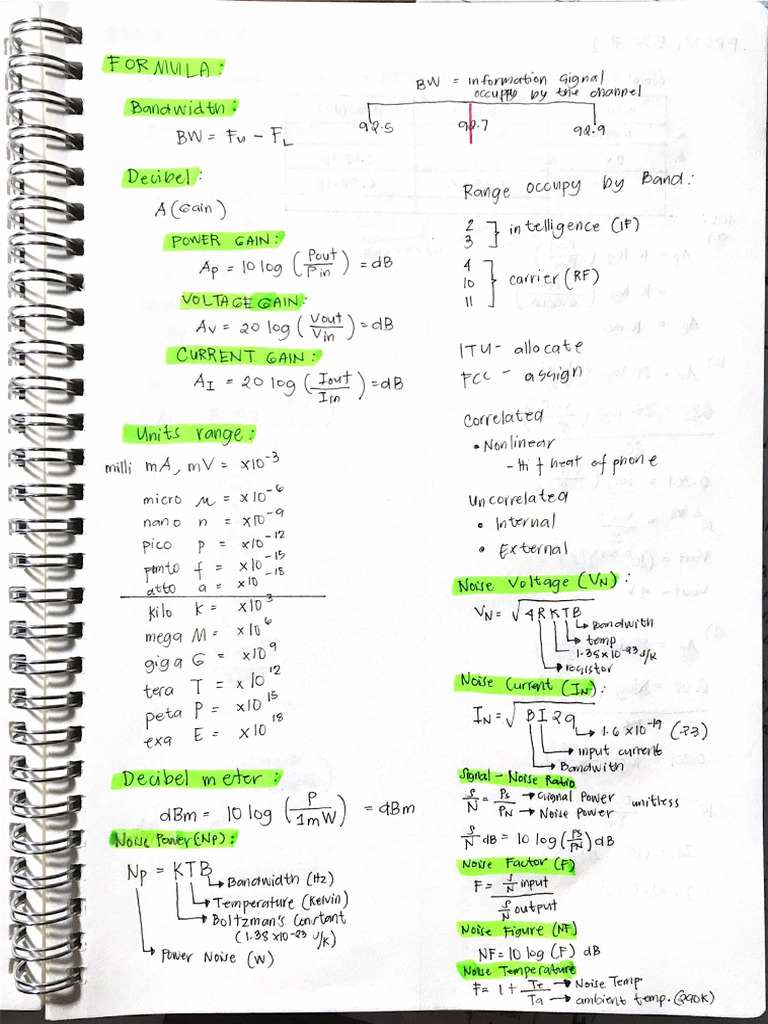 FORMULA:
Bandwidth:
BW = Fu - FL
Decibel:
A (Gain)
POWER GAIN:
Ap = 10 log (Pout/Pin) = dB
VOLTAGE GAIN:
Av = 20 log (Vout/Vin) = dB
CURRENT GAIN:
AI = 20 log (Iout/Iin) = dB
Units range:
milli mA, mV = x10^-3
micro μ = x10^-6
nano n = x10^-9
pico p = x10^-12
f = x10^-15
atto a = x10^-18
kilo k = x10^3
mega M = x10^6
giga G = x10^9
tera T = x10^12
peta P = x10^15
exa E = x10^18
Decibel meter:
dBm = 10 log (P/1mW) = dBm
Noise Power (Np):
Np = KTB
Bandwidth (Hz)
Temperature (Kelvin)
Boltzman's Constant
(1.38 x10^-23 J/K)
Power Noise (W)
BW = information signal
occupy by the channel
92.5 92.7 92.9
Range occupy by Band:
2
3 ] intelligence (IF)
4
10 ] carrier (RF)
11
ITU - allocate
FCC - assign
Correlated
• Nonlinear
- Hi f heat of phone
Uncorrelated
• Internal
• External
Noise Voltage (VN):
VN = √4RKTB
Bandwith
temp
1.38x10^-23 J/K
resistor
Noise Current (IN):
IN = √BI2q
1.6 x10^-19
input current
Bandwith
Signal - Noise Ratio
S/N = Ps/PN → Signal Power unitless
→ Noise Power
S/N dB = 10 log (Ps/PN) dB
Noise Factor (F)
F = S/N input
S/N output
Noise Figure (NF)
NF = 10 log (F) dB
Noise Temperature
F = 1 + Te/Ta → Noise Temp
→ ambient temp. (290K)